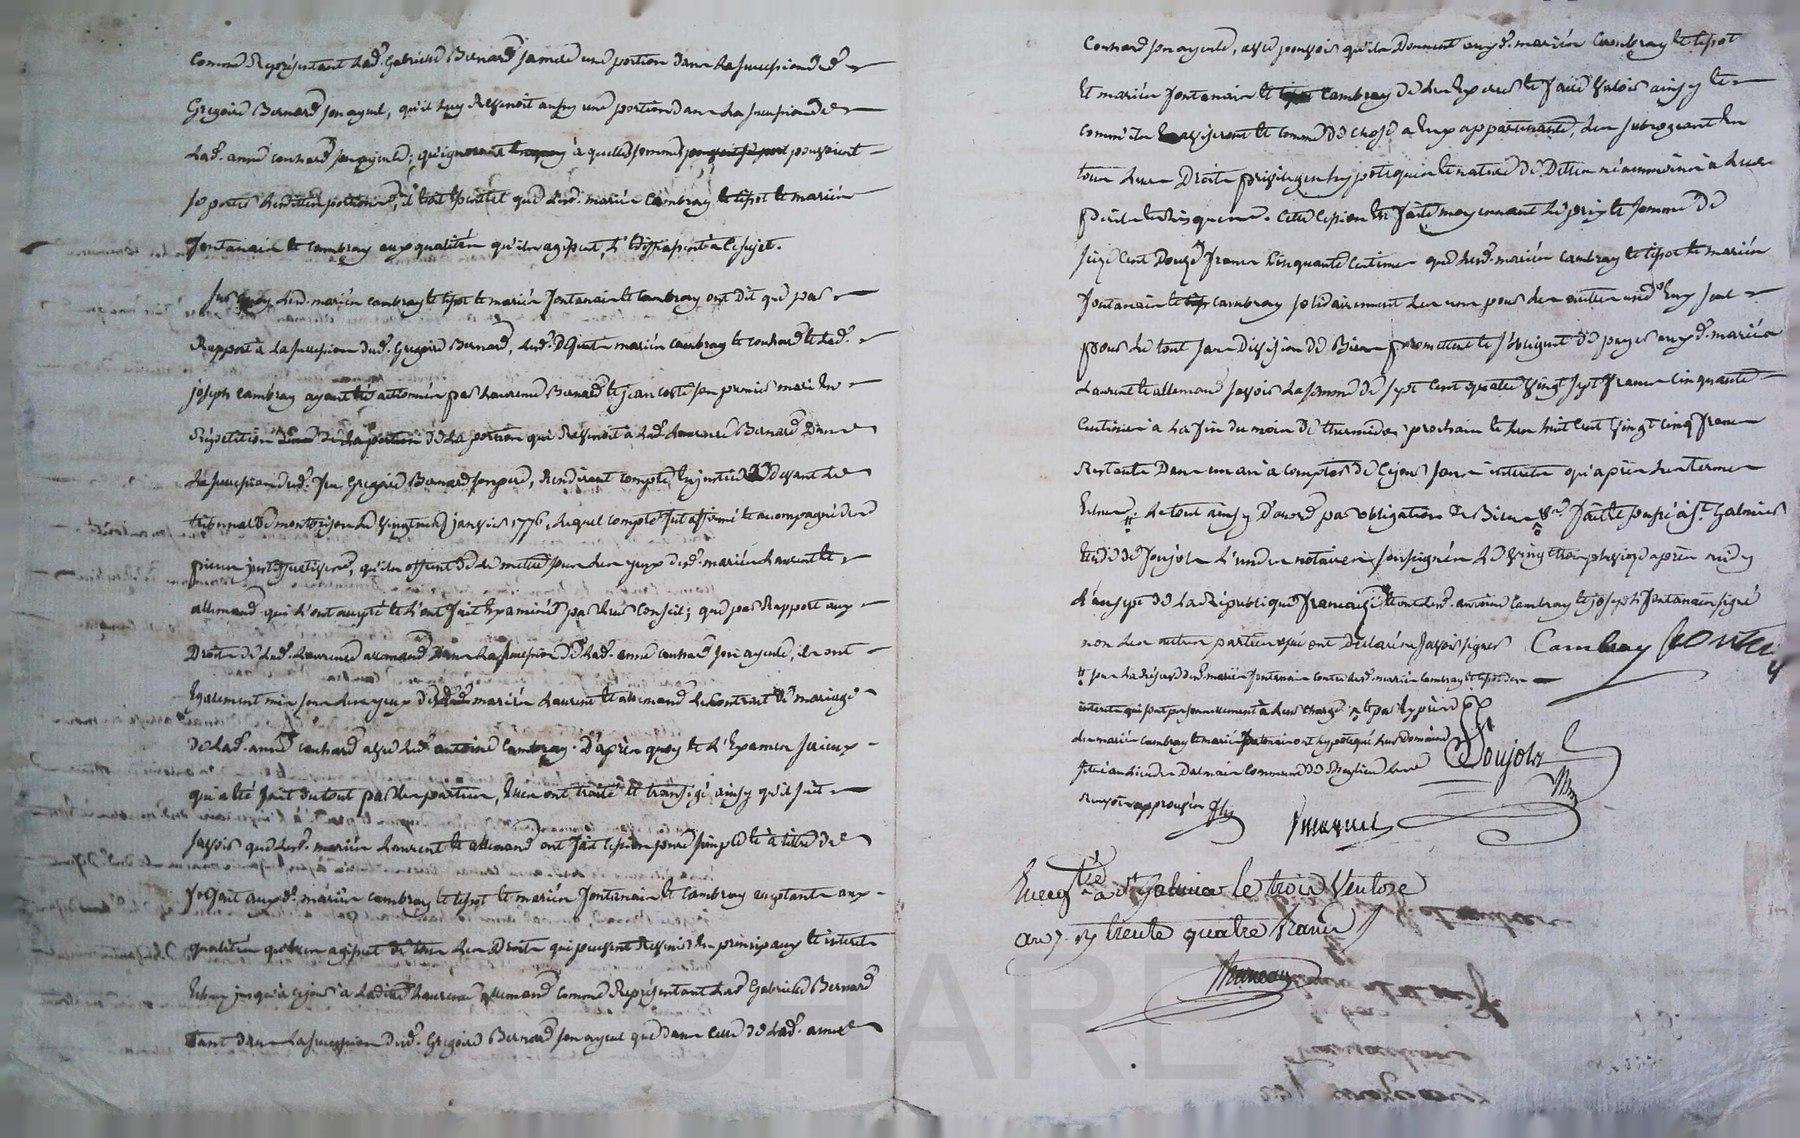 comme Représentant lad. Gabrielle Bernard sa mère une portion dans la succession de
Gregoire Bernard son ayeul, qu'il luy Revenoit aussy une portion dans la succession de
lad. anne couhard son ayeule; qu'ignorant à quelle somme pouvoient
se porter lesdittes portions, il étoit que lesd. mariés Cambray et tissot et mariés
fontanais et Cambray aux qualités qu'ils agissent, à ce sujet.
Sur lesd. mariés cambray et tissot et mariés fontanais et Cambray ont dit que par
Rapport à la succession dud. Gregoire Bernard, lesd. mariés Cambray et couhard et led.
joseph Cambray ayant été actionnés par Laurence Bernard et jean coste son premier mari en
Répétition de la portion qui Revenoit à lad. Laurence Bernard Dans
la succession dud. feu Gregoire Bernard son père, Rendirent compte en justice Devant le
tribunal de montbrison le vingt janvier 1776, lequel compte fut affirmé et accompagné des
pieces justifficatives, qu'ils offrent de mettre sous les yeux desd. mariés Laurent et
allemand qui l'ont accepté et l'ont fait Examiner par leur Conseil; que par Rapport aux
Droits de lad. Laurence allemand Dans la succession de lad. anne couhard son ayeule, ils ont
Egalement mis sous les yeux desd. mariés Laurent et allemand le Contrat de mariage
de lad. anne couhard avec led. antoine Cambray. D'après quoy et l'Examen serieux
qui a été fait du tout par les parties, Elles ont traité et transigé ainsy qu'il suit
savoir que lesd. mariés Laurent et allemand ont fait cession pure simple et à titre de
forfait auxd. mariés Cambray et tissot et mariés fontanais et Cambray acceptants aux
qualités qu'ils agissent de tous les Droits qui peuvent Revenir en principaux et interets
Echus jusqu'à ce jour à ladite Laurence allemand comme Représentant lad. Gabrielle Bernard
tant dans la succession dud. Gregoire Bernard son ayeul que dans celle de lad. anne
Couhard son ayeule, avec pouvoir qu'ils Donnent auxd. mariés Cambray et tissot
et mariés fontanais et Cambray de les Exercer et faire valoir ainsy et
comme ils aviseront et comme de chose à Eux appartenante, les subrogeant en
tous leurs Droits privileges hypoteques et nature de Dettes néanmoins à leurs
perils et risques. Cette Cession Est faite moyennant le prix et somme de
seize Cent Douze francs Cinquante Centimes que lesd. mariés Cambray et tissot et mariés
fontanais et cambray solidairement les uns pour les autres un d'Eux seul
pour le tout sans Division de Biens promettent et s'obligent de payer auxd. mariés
Laurent et allemand savoir la somme de sept Cent quatre vingt sept francs Cinquante
Centimes à la fin du mois de thermidor prochain et les huit Cent vingt cinq francs
Restants Dans un an à compter de ce jour sans interets qu'après les termes
Echus. le tout ainsy D'accord par obligation de Biens &c. fait et passé à St. Galmier
Etude de Soujols l'un des notaires soussignés le vingt trois pluviose après midy
l'an sept de la République française et ont lesd. antoine Cambray et joseph fontanais signé
non les autres parties qui ont Déclaré ne savoir signer Cambray
sous la Réserve desd. mariés fontanais contre lesd. mariés Cambray et tissot des
interets qui sont personnellement à leur charge et par Exprès
les mariés Cambray et mariés fontanais ont hypotequé leur Domaine
situé au lieu de Commune de
Renvois approuvés
Soujols
Enregtré à St Galmier le trois Ventose
an 7. R/ trente quatre francs